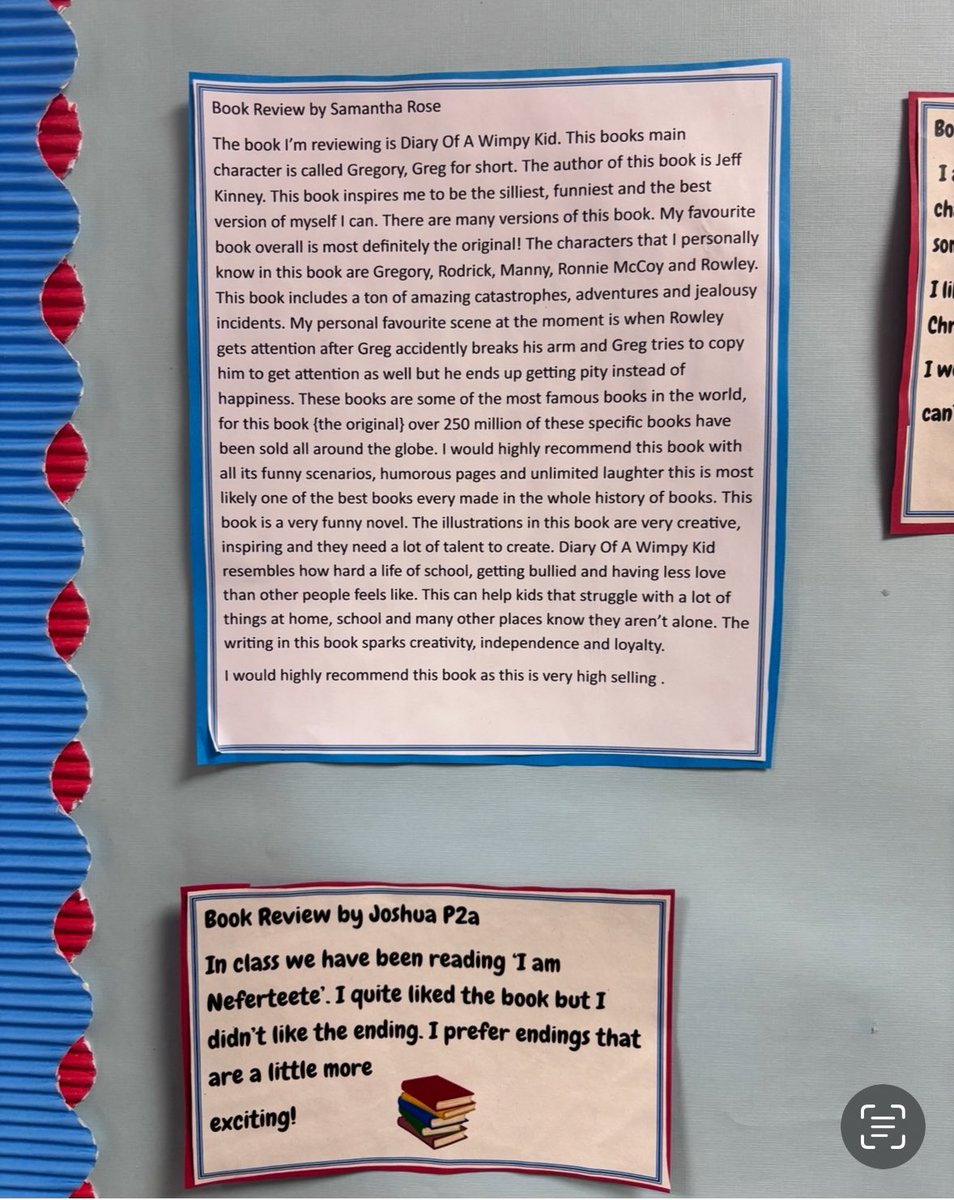 Book Review by Samantha Rose
The book I'm reviewing is Diary Of A Wimpy Kid. This books main
character is called Gregory, Greg for short. The author of this book is Jeff
Kinney. This book inspires me to be the silliest, funniest and the best
version of myself I can. There are many versions of this book. My favourite
book overall is most definitely the original! The characters that I personally
know in this book are Gregory, Rodrick, Manny, Ronnie McCoy and Rowley.
This book includes a ton of amazing catastrophes, adventures and jealousy
incidents. My personal favourite scene at the moment is when Rowley
gets attention after Greg accidently breaks his arm and Greg tries to copy
him to get attention as well but he ends up getting pity instead of
happiness. These books are some of the most famous books in the world,
for this book {the original} over 250 million of these specific books have
been sold all around the globe. I would highly recommend this book with
all its funny scenarios, humorous pages and unlimited laughter this is most
likely one of the best books every made in the whole history of books. This
book is a very funny novel. The illustrations in this book are very creative,
inspiring and they need a lot of talent to create. Diary Of A Wimpy Kid
resembles how hard a life of school, getting bullied and having less love
than other people feels like. This can help kids that struggle with a lot of
things at home, school and many other places know they aren't alone. The
writing in this book sparks creativity, independence and loyalty.
I would highly recommend this book as this is very high selling .
Book Review by Joshua P2a
In class we have been reading 'I am
Neferteete'. I quite liked the book but I
didn't like the ending. I prefer endings that
are a little more
exciting!
Bo
I
ch
I li
Chr
I w
can'